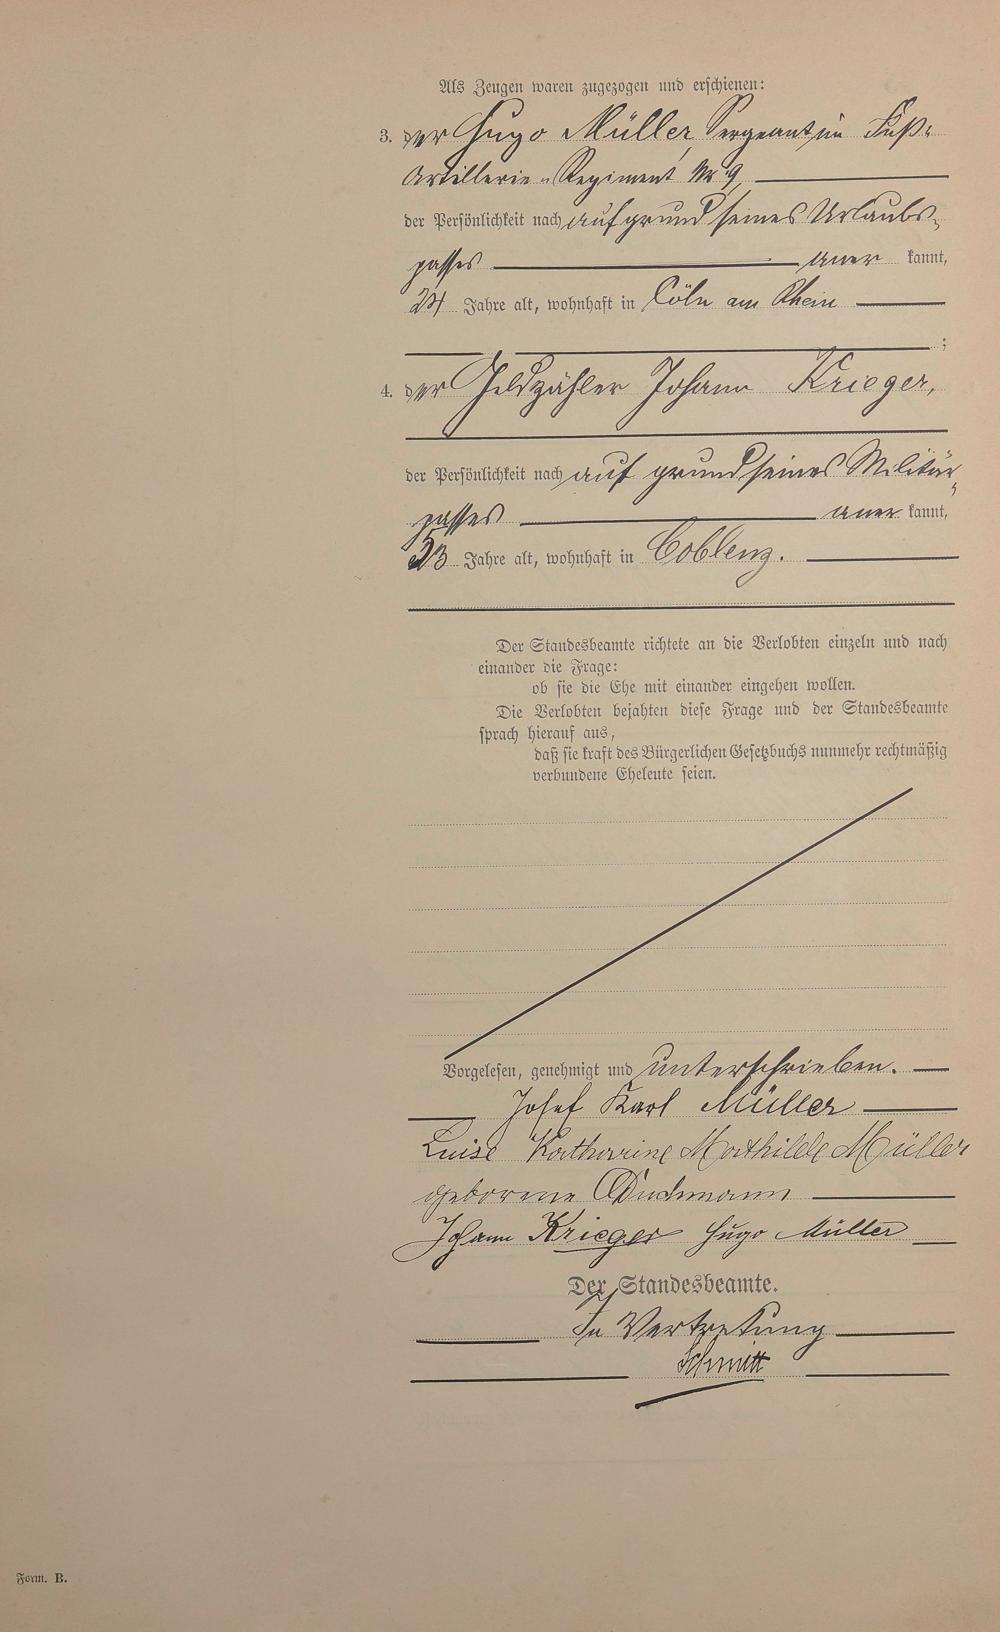 Als Zeugen waren zugezogen und erschienen:
3. der Hugo Müller, Sergeant im Fuß-
Artillerie-Regiment Nr 9,
der Persönlichkeit nach auf grund seines Urlaubs-
passes aner kannt,
24 Jahre alt, wohnhaft in Cöln am Rhein
;
4. der Geldzähler Johann Krieger,
der Persönlichkeit nach auf grund seines Militär-
passes aner kannt,
53 Jahre alt, wohnhaft in Coblenz.
Der Standesbeamte richtete an die Verlobten einzeln und nach
einander die Frage:
ob sie die Ehe mit einander eingehen wollen.
Die Verlobten bejahten diese Frage und der Standesbeamte
sprach hierauf aus,
daß sie kraft des Bürgerlichen Gesetzbuchs nunmehr rechtmäßig
verbundene Eheleute seien.
Vorgelesen, genehmigt und unterschrieben.
Josef Karl Müller
Luise Katharine Mathilde Müller
geborene
Johann Krieger Hugo Müller
Der Standesbeamte.
In Vertretung
Schmitt
Form. B.